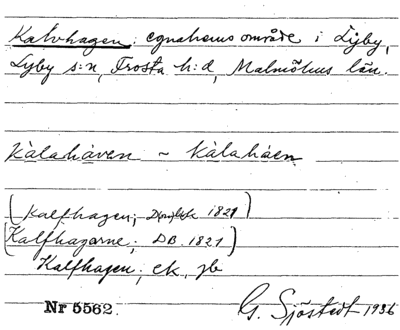 Kalvhagen; egnahemsområde i Lyby,
Lyby s:n, Frosta h:d, Malmöhus län.
kàlahàven ~ kàlahàen
(Kalfhagen; 1821)
(Kalfhagarne; DB. 1821)
Kalfhagen; ek, jb
Nr 5562. G. Sjöstedt 1936